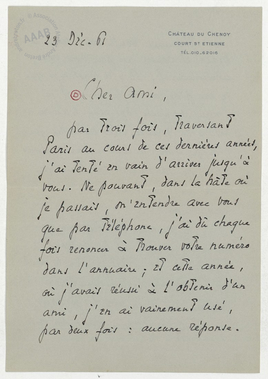 23 Déc. 61
CHATEAU DU CHENOY
COURT ST ETIENNE
TÉL. 
AAAP
Cher Ami,
par trois fois, traversant
Paris au cours de ces dernières années,
j'ai tenté en vain d'arriver jusqu'à
vous. Ne pouvant, dans la hâte où
je passais, m'entendre avec vous
que par téléphone, j'ai dû chaque
fois renoncer à trouver votre numéro
dans l'annuaire ; et cette année,
où j'avais réussi à l'obtenir d'un
ami, j'en ai vainement usé,
par deux fois : aucune réponse.